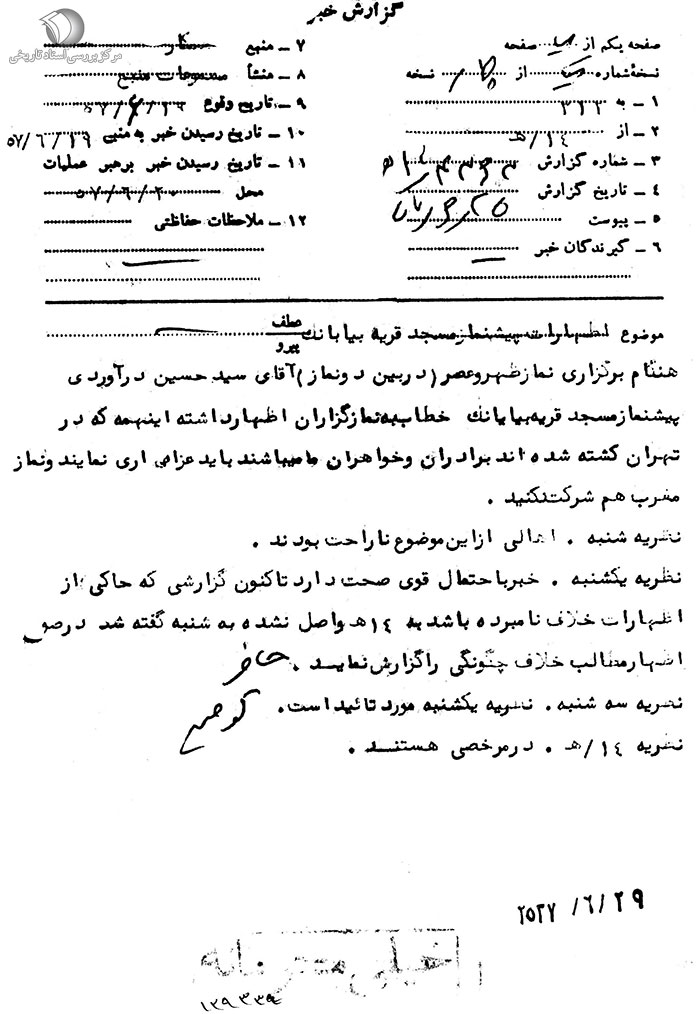 گزارش خبر
مرکز بررسی اسناد تاریخی
صفحه یکم از یک صفحه
نسخه شماره یک از چهار نسخه
۱ ـ به ۳۱۲
۲ ـ از ۱۴/هـ
۳ ـ شماره گزارش
۴ ـ تاریخ گزارش
۵ ـ پیوست
۶ ـ گیرندگان خبر
۷ ـ منبع
۸ ـ منشأ مسموعات منبع
۹ ـ تاریخ وقوع
۱۰ ـ تاریخ رسیدن خبر به منبع ۵۷/۶/۱۹
۱۱ ـ تاریخ رسیدن خبر برهبر عملیات
محل ۵۷/۶/۲۰
۱۲ ـ ملاحظات حفاظتی
موضوع اظهارات پیشنماز مسجد قریه بیابانك عطف
پیرو
هنگام برگزاری نماز ظهر و عصر (در بین دو نماز) آقای سید حسین درآوردی
پیشنماز مسجد قریه بیابانك خطاب به نمازگزاران اظهار داشته اینهمه که در
تهران کشته شده اند برادران و خواهران ما میباشند باید عزاداری نمایند و نماز
مغرب هم شرکت نکنید .
نظریه شنبه . اهالی از این موضوع ناراحت بودند .
نظریه یکشنبه . خبر باحتمال قوی صحت دارد تاکنون گزارشی که حاکی از
اظهارات خلاف نامبرده باشد به ۱۴ هـ واصل نشده به شنبه گفته شد در صورت
اظهار مطالب خلاف چگونگی را گزارش نماید .
نظریه سه شنبه . نظریه یکشنبه مورد تائید است .
نظریه ۱۴/هـ . در مرخصی هستند .
۲۵۳۷/۶/۲۹
۱۳۹۳۳۹